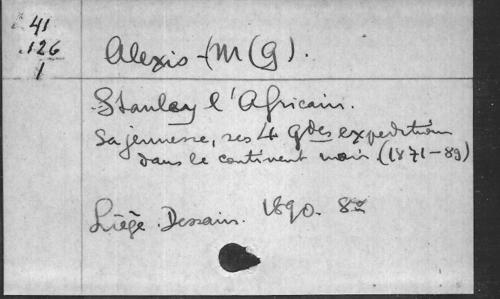 41
126
1
Alexis-(M(G).
Stanley l'Africain.
Sa jeunesse, ses 4 gdes expeditions
dans le continent noir (1871-89)
Liège. Dessain. 1890. 8º